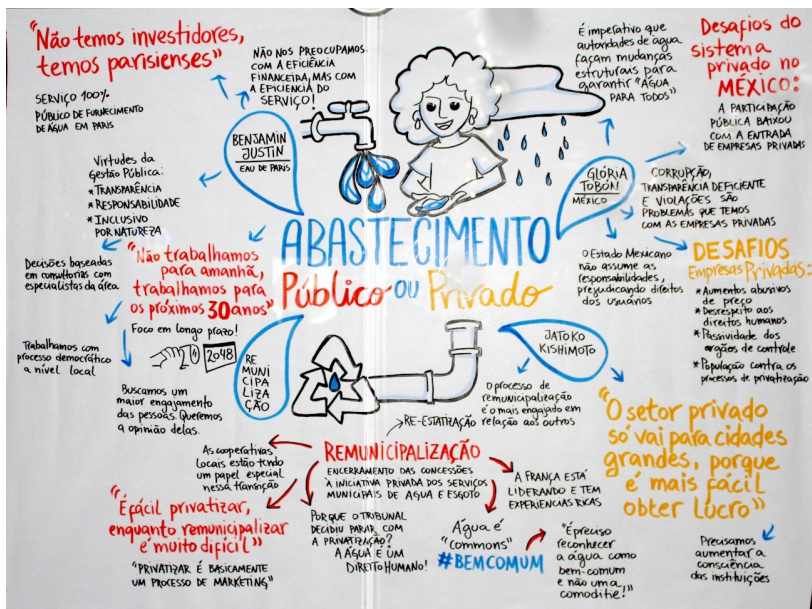 "Não temos investidores,
temos parisienses"
SERVIÇO 100%
PÚBLICO DE FORNECIMENTO
DE ÁGUA EM PARIS
NÃO NOS PREOCUPAMOS
COM A EFICIÊNCIA
FINANCEIRA, MAS COM
A EFICIENCIA DO
SERVIÇO!
BENJAMIN
JUSTIN
EAU DE PARIS
Virtudes da
Gestão Pública:
*TRANSPARÊNCIA
*RESPONSABILIDADE
*INCLUSIVO
POR NATUREZA
Decisões baseadas
em consultorias com
especialistas da área
"Não trabalhamos
para amanhã,
trabalhamos para
os próximos 30 anos"
Foco em longo prazo!
2048
Trabalhamos com
processo democrático
a nível local
Buscamos um
maior engajamento
das pessoas. Queremos
a opinião delas.
ABASTECIMENTO
Público ou Privado
É imperativo que
autoridades de água
façam mudanças
estruturais para
garantir "ÁGUA
PARA TODOS"
Desafios do
sistema
privado no
MÉXICO:
A PARTICIPAÇÃO
PÚBLICA BAIXOU
COM A ENTRADA
DE EMPRESAS PRIVADAS
GLÓRIA
TOBÓN
MÉXICO
CORRUPÇÃO,
TRANSPARÊNCIA DEFICIENTE
E VIOLAÇÕES SÃO
PROBLEMAS QUE TEMOS
COM AS EMPRESAS PRIVADAS
O Estado Mexicano
não assume as
responsabilidades,
prejudicando direitos
dos usuários
DESAFIOS
Empresas Privadas:
*Aumentos abusivos
de preço
*Desrespeito aos
direitos humanos
*Passividade dos
orgãos de controle
*População contra os
processos de privatização
REMUNICIPALIZAÇÃO
JATOKO
KISHIMOTO
O processo de
remunicipalização
é o mais engajado em
relação aos outros
"O setor privado
só vai para cidades
grandes, porque
é mais fácil
obter lucro"
Precisamos
aumentar a
consciência
das instituições
RE-ESTATIZAÇÃO
REMUNICIPALIZAÇÃO
ENCERRAMENTO DAS CONCESSÕES
À INICIATIVA PRIVADA DOS SERVIÇOS
MUNICIPAIS DE AGUA E ESGOTO
As cooperativas
locais estão tendo
um papel especial
nessa transição
"É fácil privatizar,
enquanto remunicipalizar
é muito difícil"
"PRIVATIZAR É BASICAMENTE
UM PROCESSO DE MARKETING"
POR QUE O TRIBUNAL
DECIDIU PARAR COM
A PRIVATIZAÇÃO?
A ÁGUA É UM
DIREITO HUMANO!
Água é
"commons"
#BEMCOMUM
"É preciso
reconhecer
a água como
bem-comum
e não uma
comoditie!"
A FRANÇA ESTÁ
LIDERANDO E TEM
EXPERIENCIAS RICAS